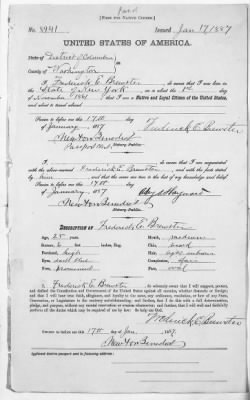 paid
[FORM FOR NATIVE CITIZEN.]
No. 8941
Issued Jan 17/1887
UNITED STATES OF AMERICA.
State of District of Columbia
County of Washington
I, Frederick E. Brewster, do swear that I was born in the
State of New York, on or about the 1st day
of November 1861; that I am a Native and Loyal Citizen of the United States,
and about to travel abroad.
Sworn to before me this 17th day
of January, 1887
Frederick E. Brewster
Notary Public.
I, do swear that I am acquainted
with the above-named Frederick E. Brewster, and with the facts stated
by him and that the same are true to the best of my knowledge and belief.
Sworn to before me this 17th day
of January, 1887
Notary Public.
DESCRIPTION OF Frederick E. Brewster
Age: 25 years.
Mouth, medium
Stature:
Chin,
Forehead, high
Hair,
Eyes, dark blue
Complexion,
Nose,
Face, oval
I, Frederick E. Brewster, do solemnly swear that I will support, protect,
and defend the Constitution and Government of the United States against all enemies, whether domestic or foreign;
and that I will bear true faith, allegiance, and loyalty to the same, any ordinance, resolution, or law of any State,
Convention, or Legislature to the contrary notwithstanding; and further, that I do this with a full determination,
pledge, and purpose, without any mental reservation or evasion whatsoever; and further, that I will well and faithfully
perform all the duties which may be required of me by law: So help me God.
Frederick E. Brewster
Sworn to before me this 17th day of Jan, 1887.
Applicant desires passport to be sent to